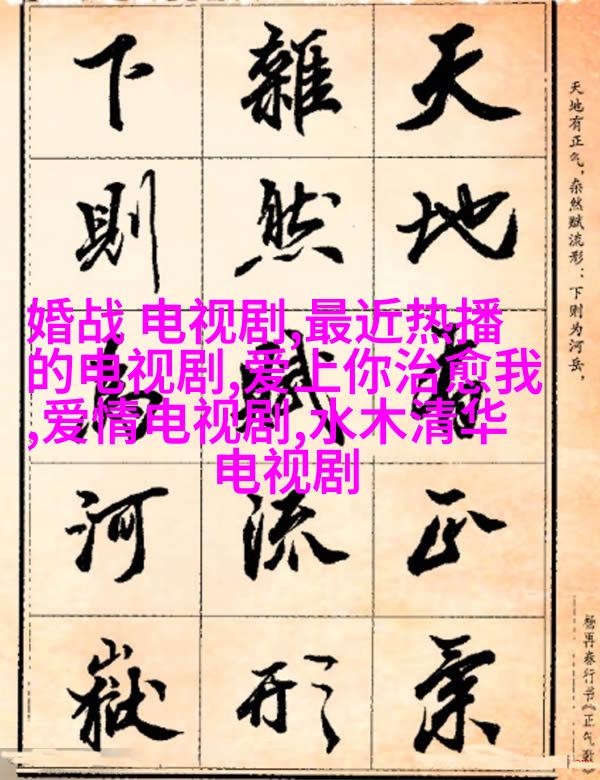 天地有正氣
雜然賦流形
下則為河嶽
天地有正气，杂然赋流形：下则为河岳，
杨再春行书《正气歌》
婚战 电视剧,最近热播
的电视剧,爱上你治愈我
,爱情电视剧,水木清华
电视剧